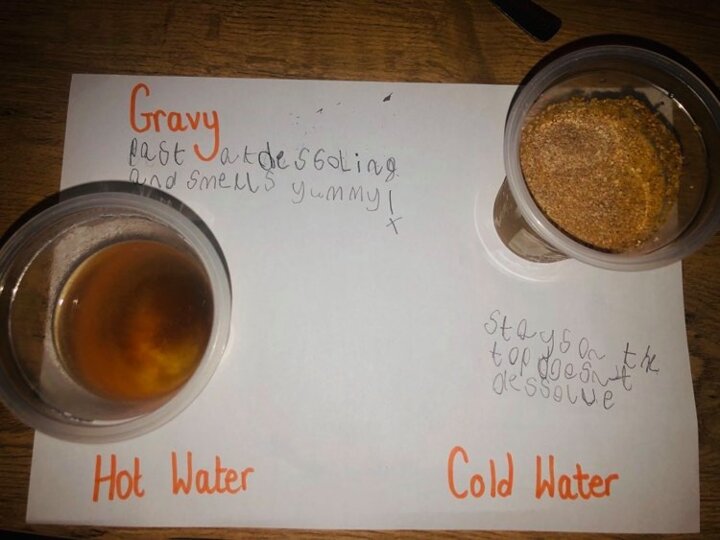 Gravy
past at dessoling
and smells yummy!
x
stays on the
top doesnt
dessolve
Hot Water
Cold Water